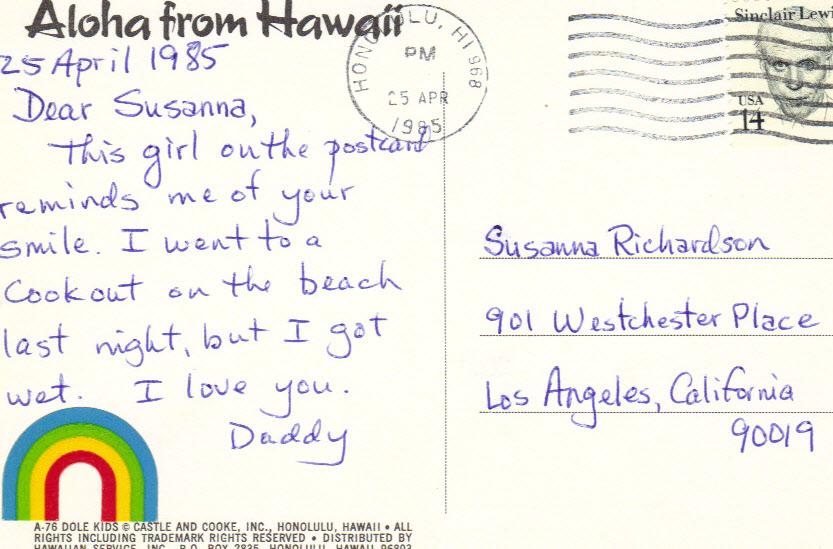 Aloha from Hawaii
25 April 1985
Dear Susanna,
This girl on the postcard
reminds me of your
smile. I went to a
Cookout on the beach
last night, but I got
wet. I love you.
Daddy
A-76 DOLE KIDS © CASTLE AND COOKE, INC., HONOLULU, HAWAII • ALL
RIGHTS INCLUDING TRADEMARK RIGHTS RESERVED • DISTRIBUTED BY
HAWAIIAN SERVICE, INC., P.O. BOX 2835, HONOLULU, HAWAII 96803
HONOLULU, HI 968
PM
25 APR
1985
Sinclair Lewi
USA
14
Susanna Richardson
901 Westchester Place
Los Angeles, California
90019